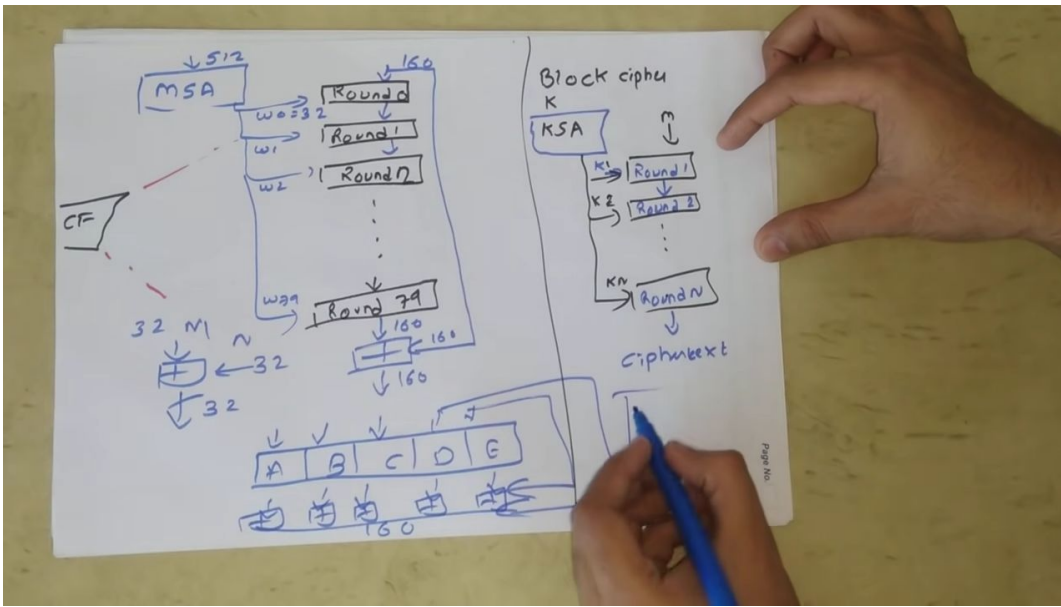 512
MSA
160
Round 0
W0=32
Round 1
W1
Round n
W2
CF
W79
Round 79
160
160
160
32
N
32
32
A B C D E
160
Block cipher
K
KSA
m
K1
Round 1
K2
Round 2
KN
Round N
Ciphertext
Page No.